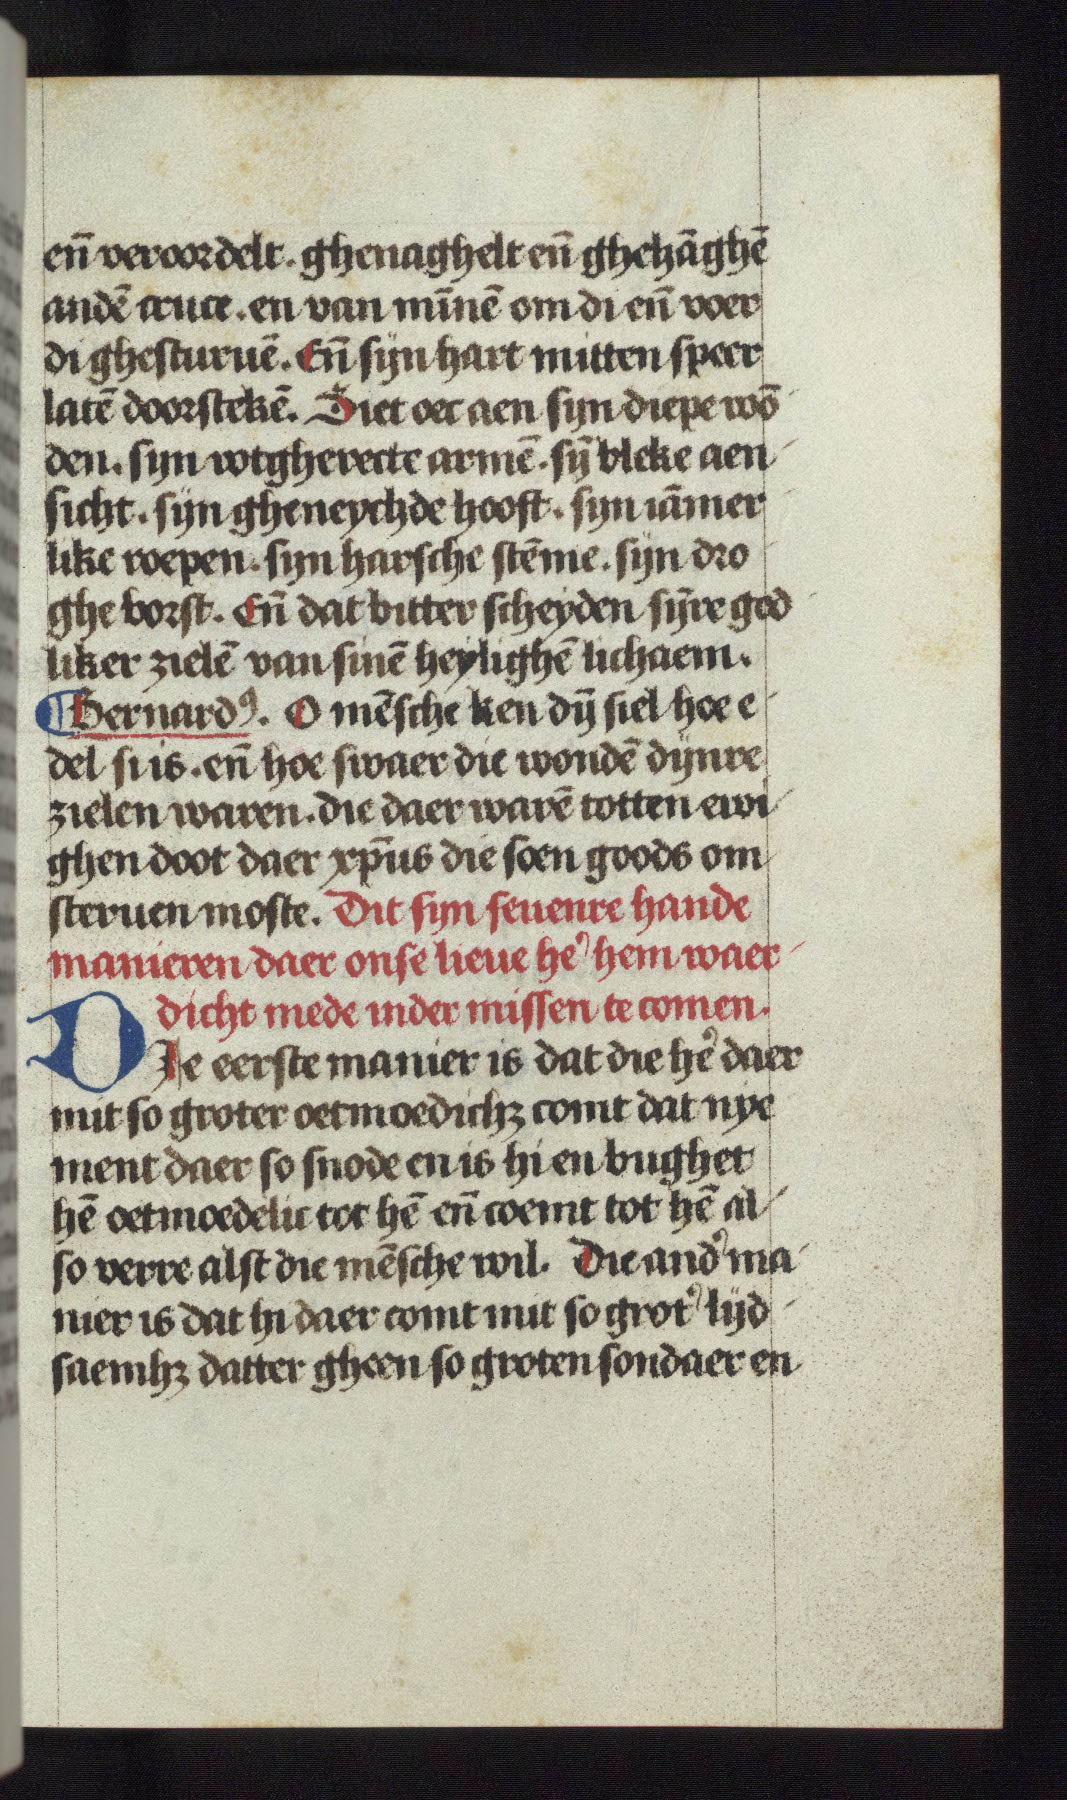 en̄ veroordelt. ghenaghelt en̄ ghehāghē
andē cruce. en van mīnē om di en̄ voer
di ghesturuē. En̄ sijn hart mitten speer
latē doorstekē. Siet oec aen syn diepe wō
den. syn wtgherecte armē. sȳ bleke aen
sicht. sijn gheneychde hooft. syn iāmer
like roepen. syn harsche stēme. sijn dro
ghe borst. En̄ dat bitter scheyden sȳre god
liker zielē van sinē heylighē lichaem.
¶ Bernardꝰ. O mēsche ken dȳ siel hoe e
del si is. en̄ hoe swaer die wondē dijnre
zielen waren. die daer warē totten ewi
ghen doot daer xp̄us die soen goods om
steruen moste. Dit syn seuenre hande
manieren daer onse lieue he᾽ hem waer
dicht mede inder missen te comen.
DIe eerste manier is dat die he᾽ daer
mit so groter oetmoedichꝫ comt dat nye
ment daer so snode en is hi en bughet
hē oetmoedelic tot hē en̄ coemt tot hē al
so verre alst die mēsche wil. Die and᾽ ma
nier is dat hi daer comt mit so grot᾽ lijd
saemhꝫ datter gheen so groten sondaer en